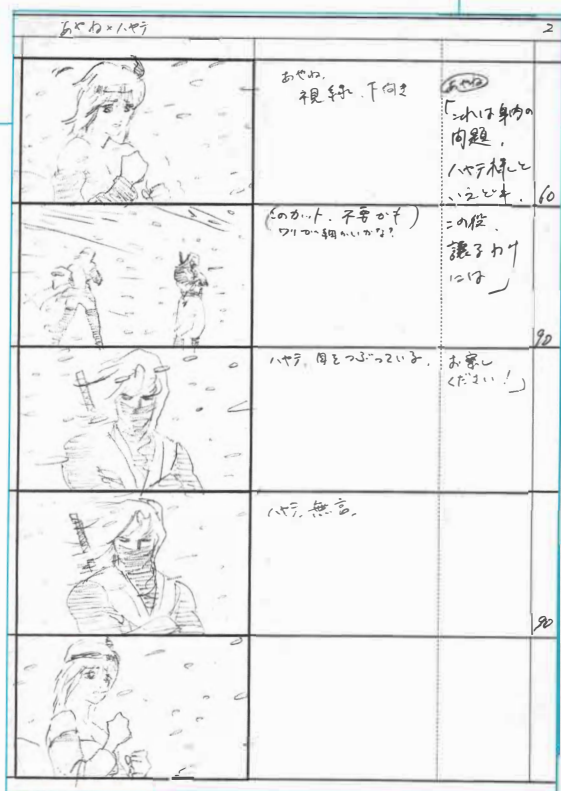 あやね×ハヤテ
2
あやね、
視線、下向き
あやね
「これは身内の
問題、
ハヤテ様と
いえども、
60
(このカット、不要かも)
ワリが細かいかな?
この役、
譲るわけ
には」
90
ハヤテ、目をつぶっている。
お察し
ください!」
ハヤテ、無言。
90